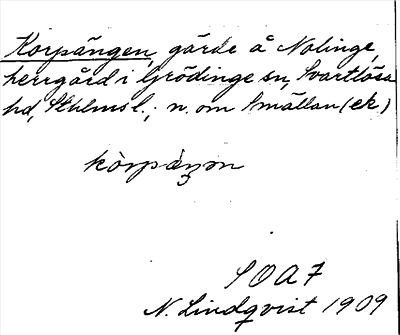 Korpängen, gärde å Nolinge,
herrgård i Grödinge sn, Svartlösa
hd, Sthlms l.; n. om Smällan (ek)
kòrpäŋən
SOA 7
N. Lindqvist 1909